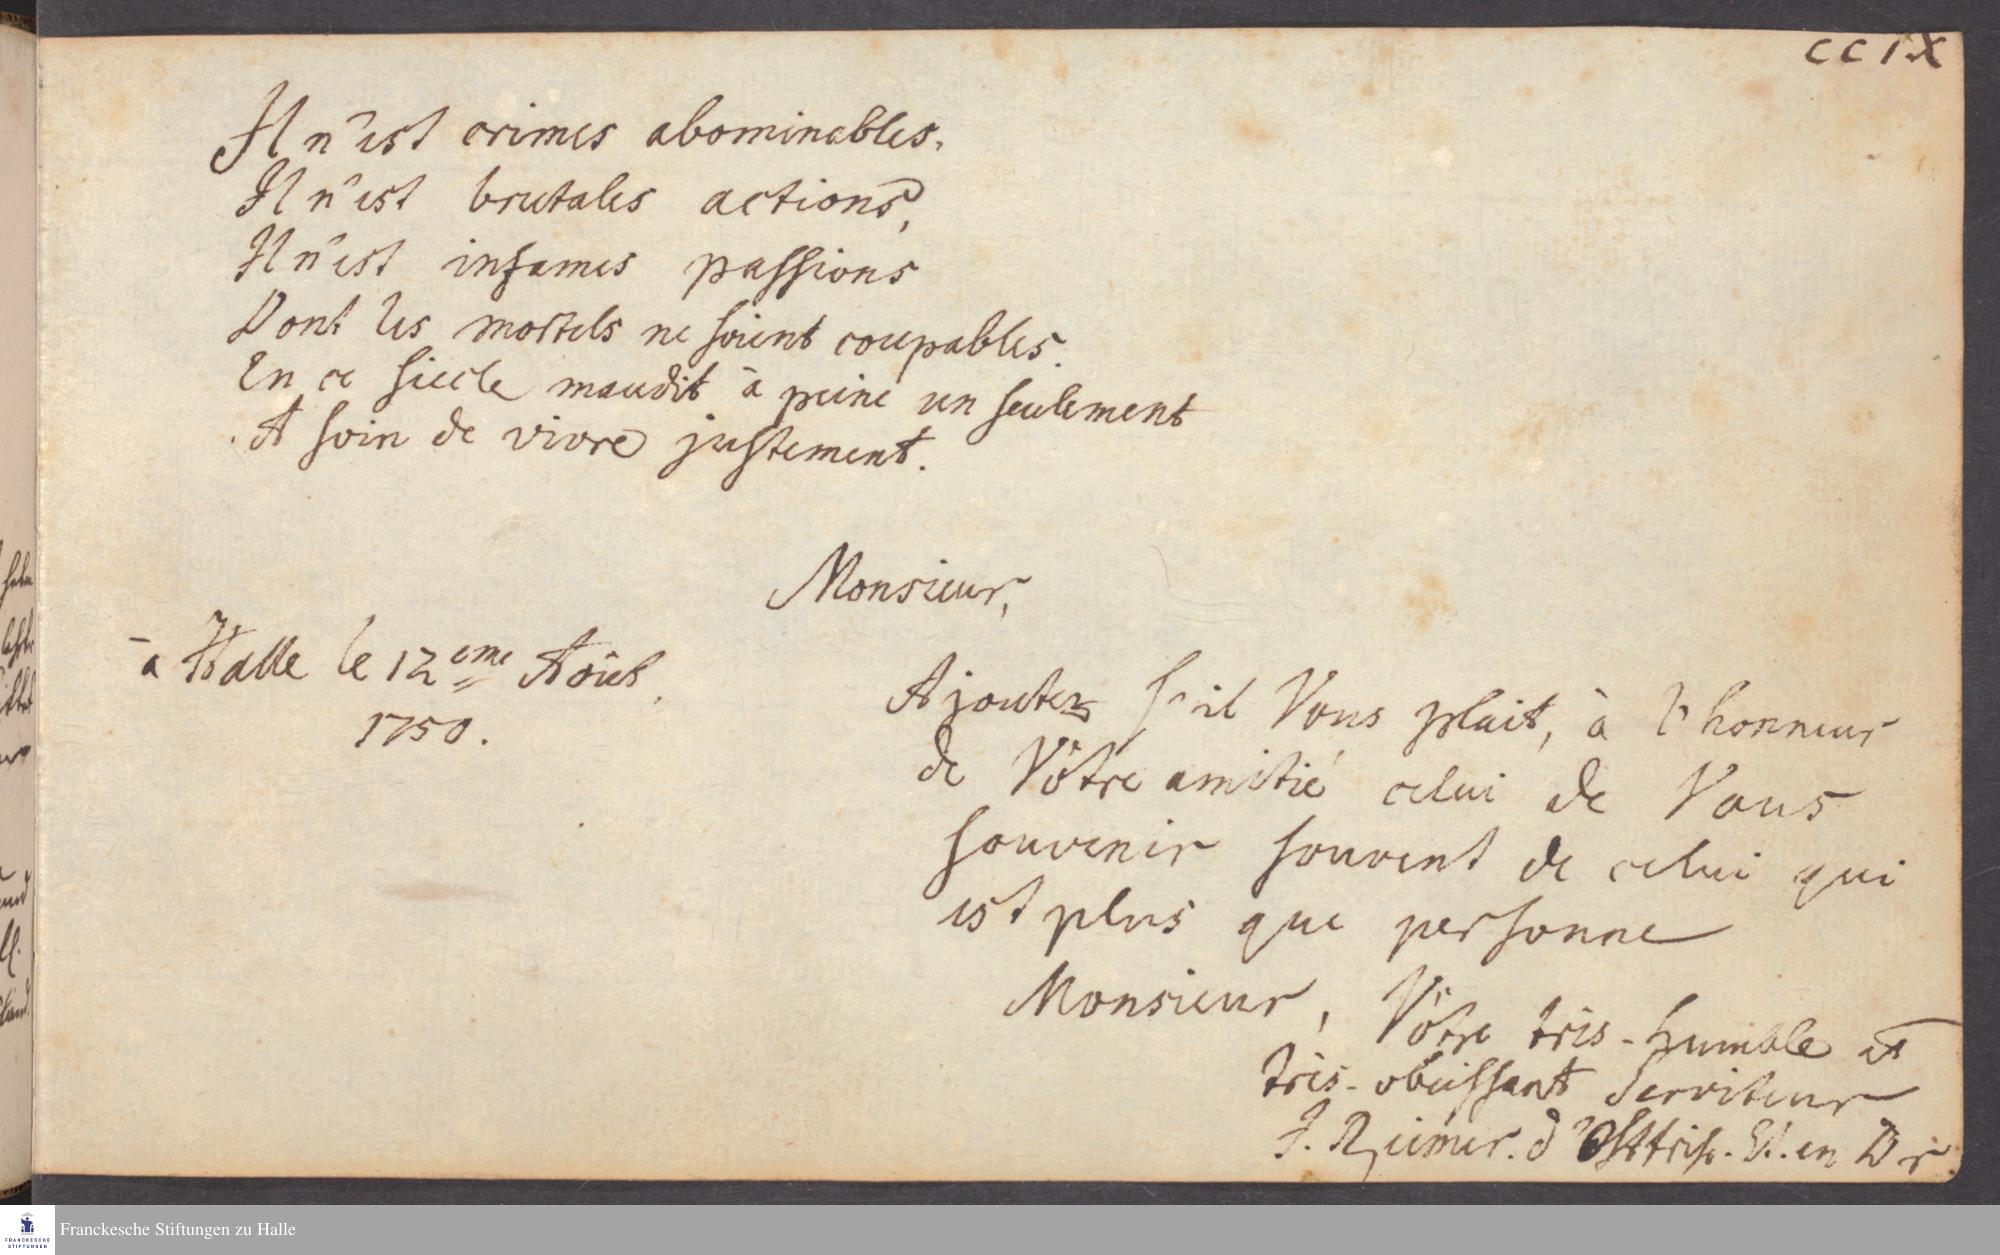 CCIX
Il n'est crimes abominables,
Il n'est brutales actions,
Il n'est infames passions
Dont les mortels ne soient coupables.
En ce siecle maudit à peine un seulement
A soin de vivre justement.
Monsieur,
à Halle le 12 eme Aôut.
1750.
Ajoutez s'il Vous plait, à l'honneur
de Vôtre amitié celui de Vous
souvenir souvent de celui qui
est plus que personne
Monsieur, Vôtre tres-humble et
tres-obeissant Serviteur
J. Reimer. d'Ostfris. Et. en Dr.
Franckesche Stiftungen zu Halle
FRANCKESCHE
STIFTUNGEN